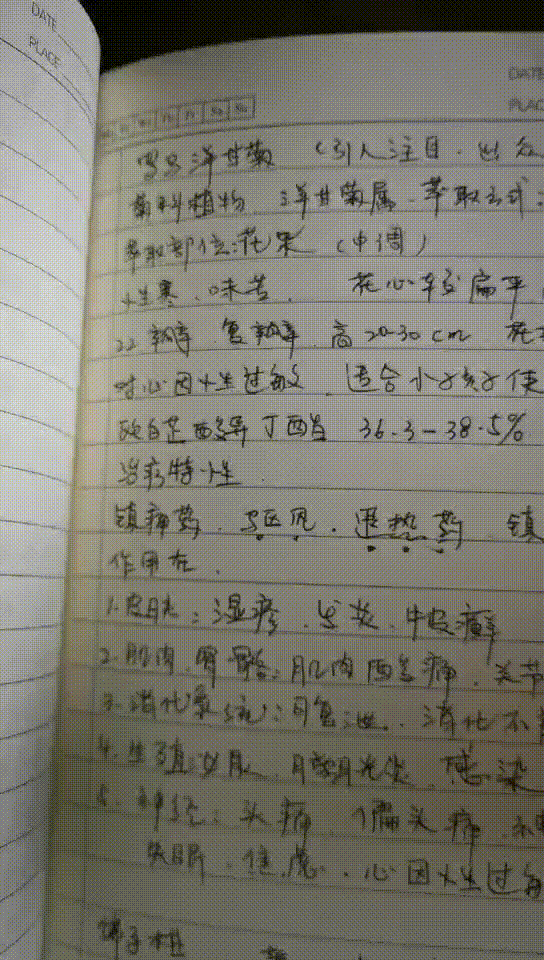 DATE
PLACE
DATE
PLAC
罗马洋甘菊 (引人注目.出众
菊科植物 洋甘菊属.萃取方式:
萃取部位:花朵 (中调)
性寒.味苦. 花心较扁平
22 朝鲜.复朝鲜.高20-30cm 花
对心因性过敏.适合小孩子使
欧白芷酸异丁酯 36.3-38.5%
治疗特性
镇痛药.驱风.退热药 镇
作用在.
1.皮肤:湿疹.发炎.牛皮癣
2.肌肉.骨骼:肌肉酸痛.关节
3.消化系统:可复泄.消化不
4.生殖:女月.月期光炎.感染
5.神经:头痛.偏头痛.
失眠.焦虑.心因性过敏